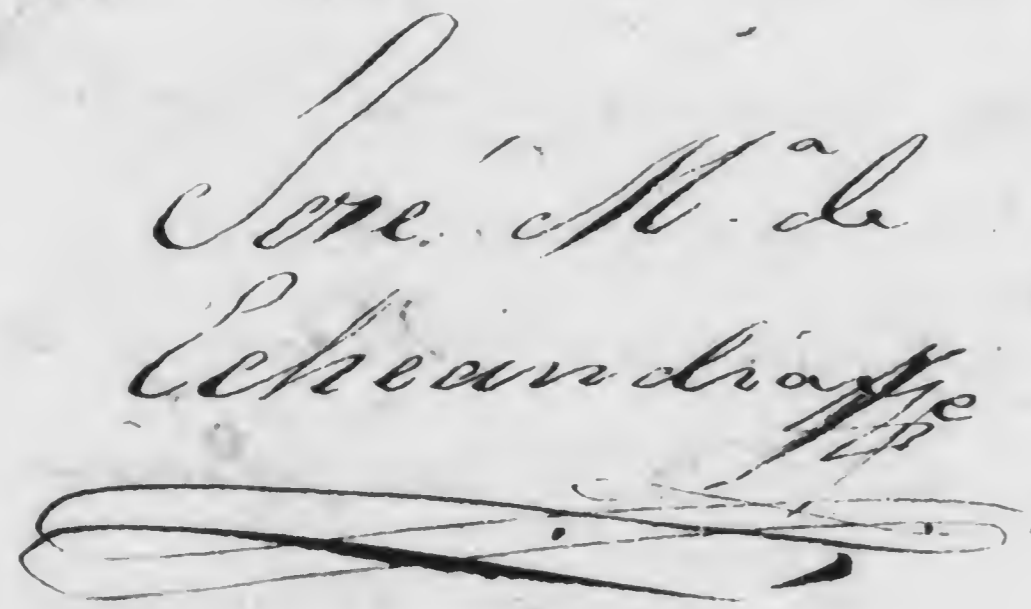 José M.ª de
Echeandía